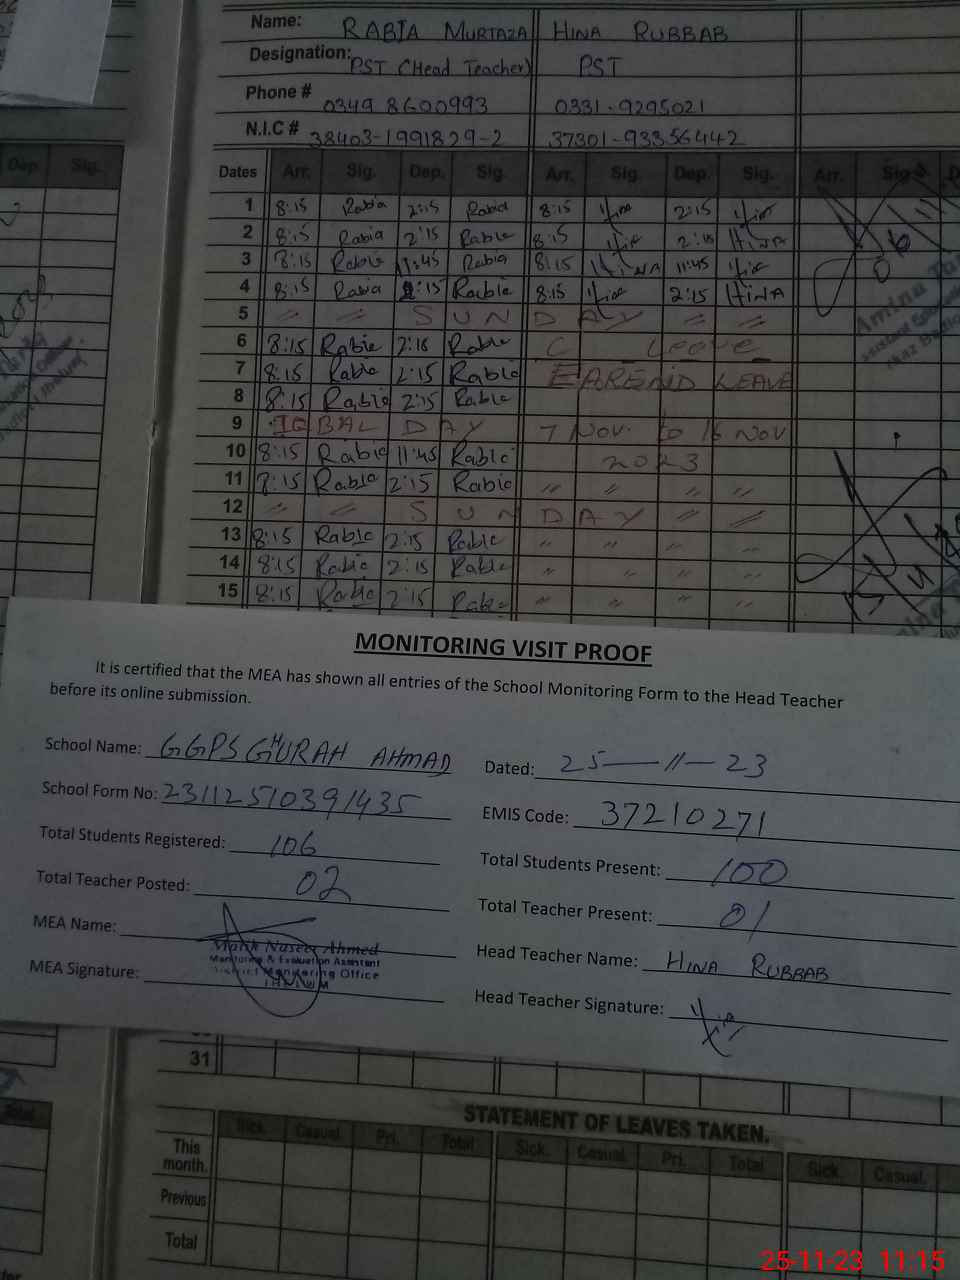 Name: RABIA MURTAZA HINA RUBBAB
Designation: PST (Head Teacher) PST
Phone # 0349 8600993 0331-9295021
N.I.C # 38403-1991829-2 37301-93356442
Dep. Sig. Dates Arr. Sig. Dep. Sig. Arr. Sig. Dep. Sig. Arr. Sig.
1 8:15 Rabia 2:15 Rabia 8:15 2:15
2 8:15 Rabia 2:15 Rabia 8:15 2:15 HiNA
3 8:15 Rabia 11:45 Rabia 8:15 HiNA 11:45
4 8:15 Rabia 2:15 Rabia 8:15 2:15 HiNA
5 〃 〃 S U N D A Y 〃 〃
6 8:15 Rabia 2:15 Rabia C Leave
7 8:15 Rabia 2:15 Rabia LEAVE
8 8:15 Rabia 2:15 Rabia
9 IQBAL DAY 7 Nov. to 16 Nov
10 8:15 Rabia 11:45 Rabia 2023
11 8:15 Rabia 2:15 Rabia 〃 〃 〃 〃
12 〃 〃 S U N D A Y 〃 〃
13 8:15 Rabia 2:15 Rabia 〃 〃 〃 〃
14 8:15 Rabia 2:15 Rabia 〃 〃 〃 〃
15 8:15 Rabia 2:15 Rabia 〃 〃 〃 〃
MONITORING VISIT PROOF
It is certified that the MEA has shown all entries of the School Monitoring Form to the Head Teacher
before its online submission.
School Name: GGPS GHURAH AHMAD Dated: 25-11-23
School Form No: 23112510391435 EMIS Code: 37210271
Total Students Registered: 106 Total Students Present: 100
Total Teacher Posted: 02 Total Teacher Present: 01
MEA Name: Head Teacher Name: HINA RUBBAB
Malik Naseer Ahmed
Monitoring & Evaluation Assistant
District Monitoring Office
MEA Signature: Head Teacher Signature:
31
STATEMENT OF LEAVES TAKEN.
Sick. Casual. Pri. Total Sick. Casual. Pri. Total Sick. Casual.
This
month.
Previous
Total
25-11-23 11:15